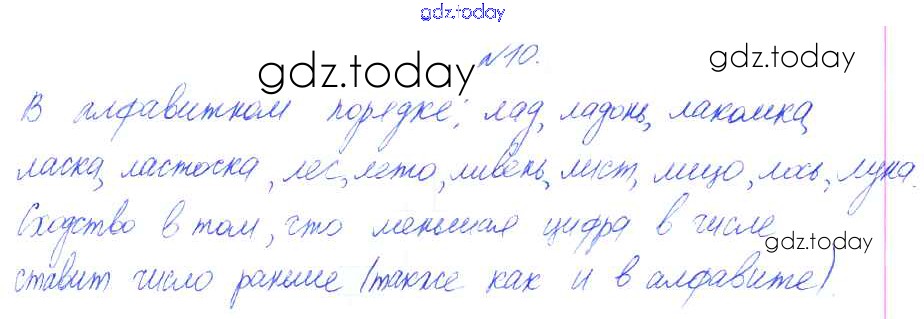 gdz.today
№10.
gdz.today
gdz.today
В алфавитном порядке: лад, ладонь, лакомка,
ласка, ласточка, лес, лето, ливень, лист, лицо, лось, луна.
Сходство в том, что меньшая цифра в числе
gdz.today
ставит число раньше (также как и в алфавите).